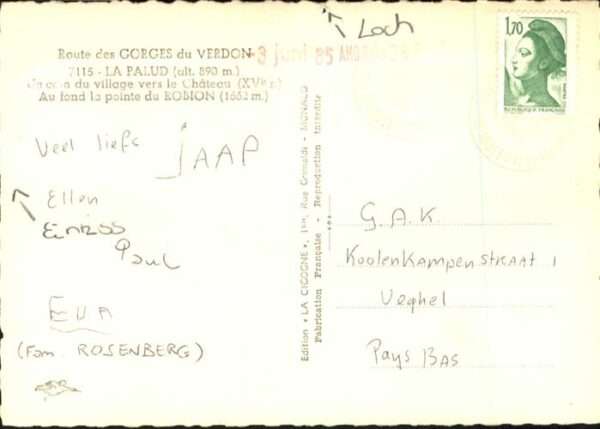 Route des GORGES du VERDON
7115 - LA PALUD (alt. 890 m.)
du village vers le Château (XVIe s.)
Au fond la pointe du ROBION (1662 m.)
3 juni 85
Loch
1,70
Veel liefs
JAAP
Ellen
Paul
EVA
(Fam. ROSENBERG)
Edition « LA CICOGNE », Rue Grimaldi - MONACO
Fabrication Française - Reproduction Interdite
G.A.K.
Koolenkampenstraat 1
Veghel
Pays Bas